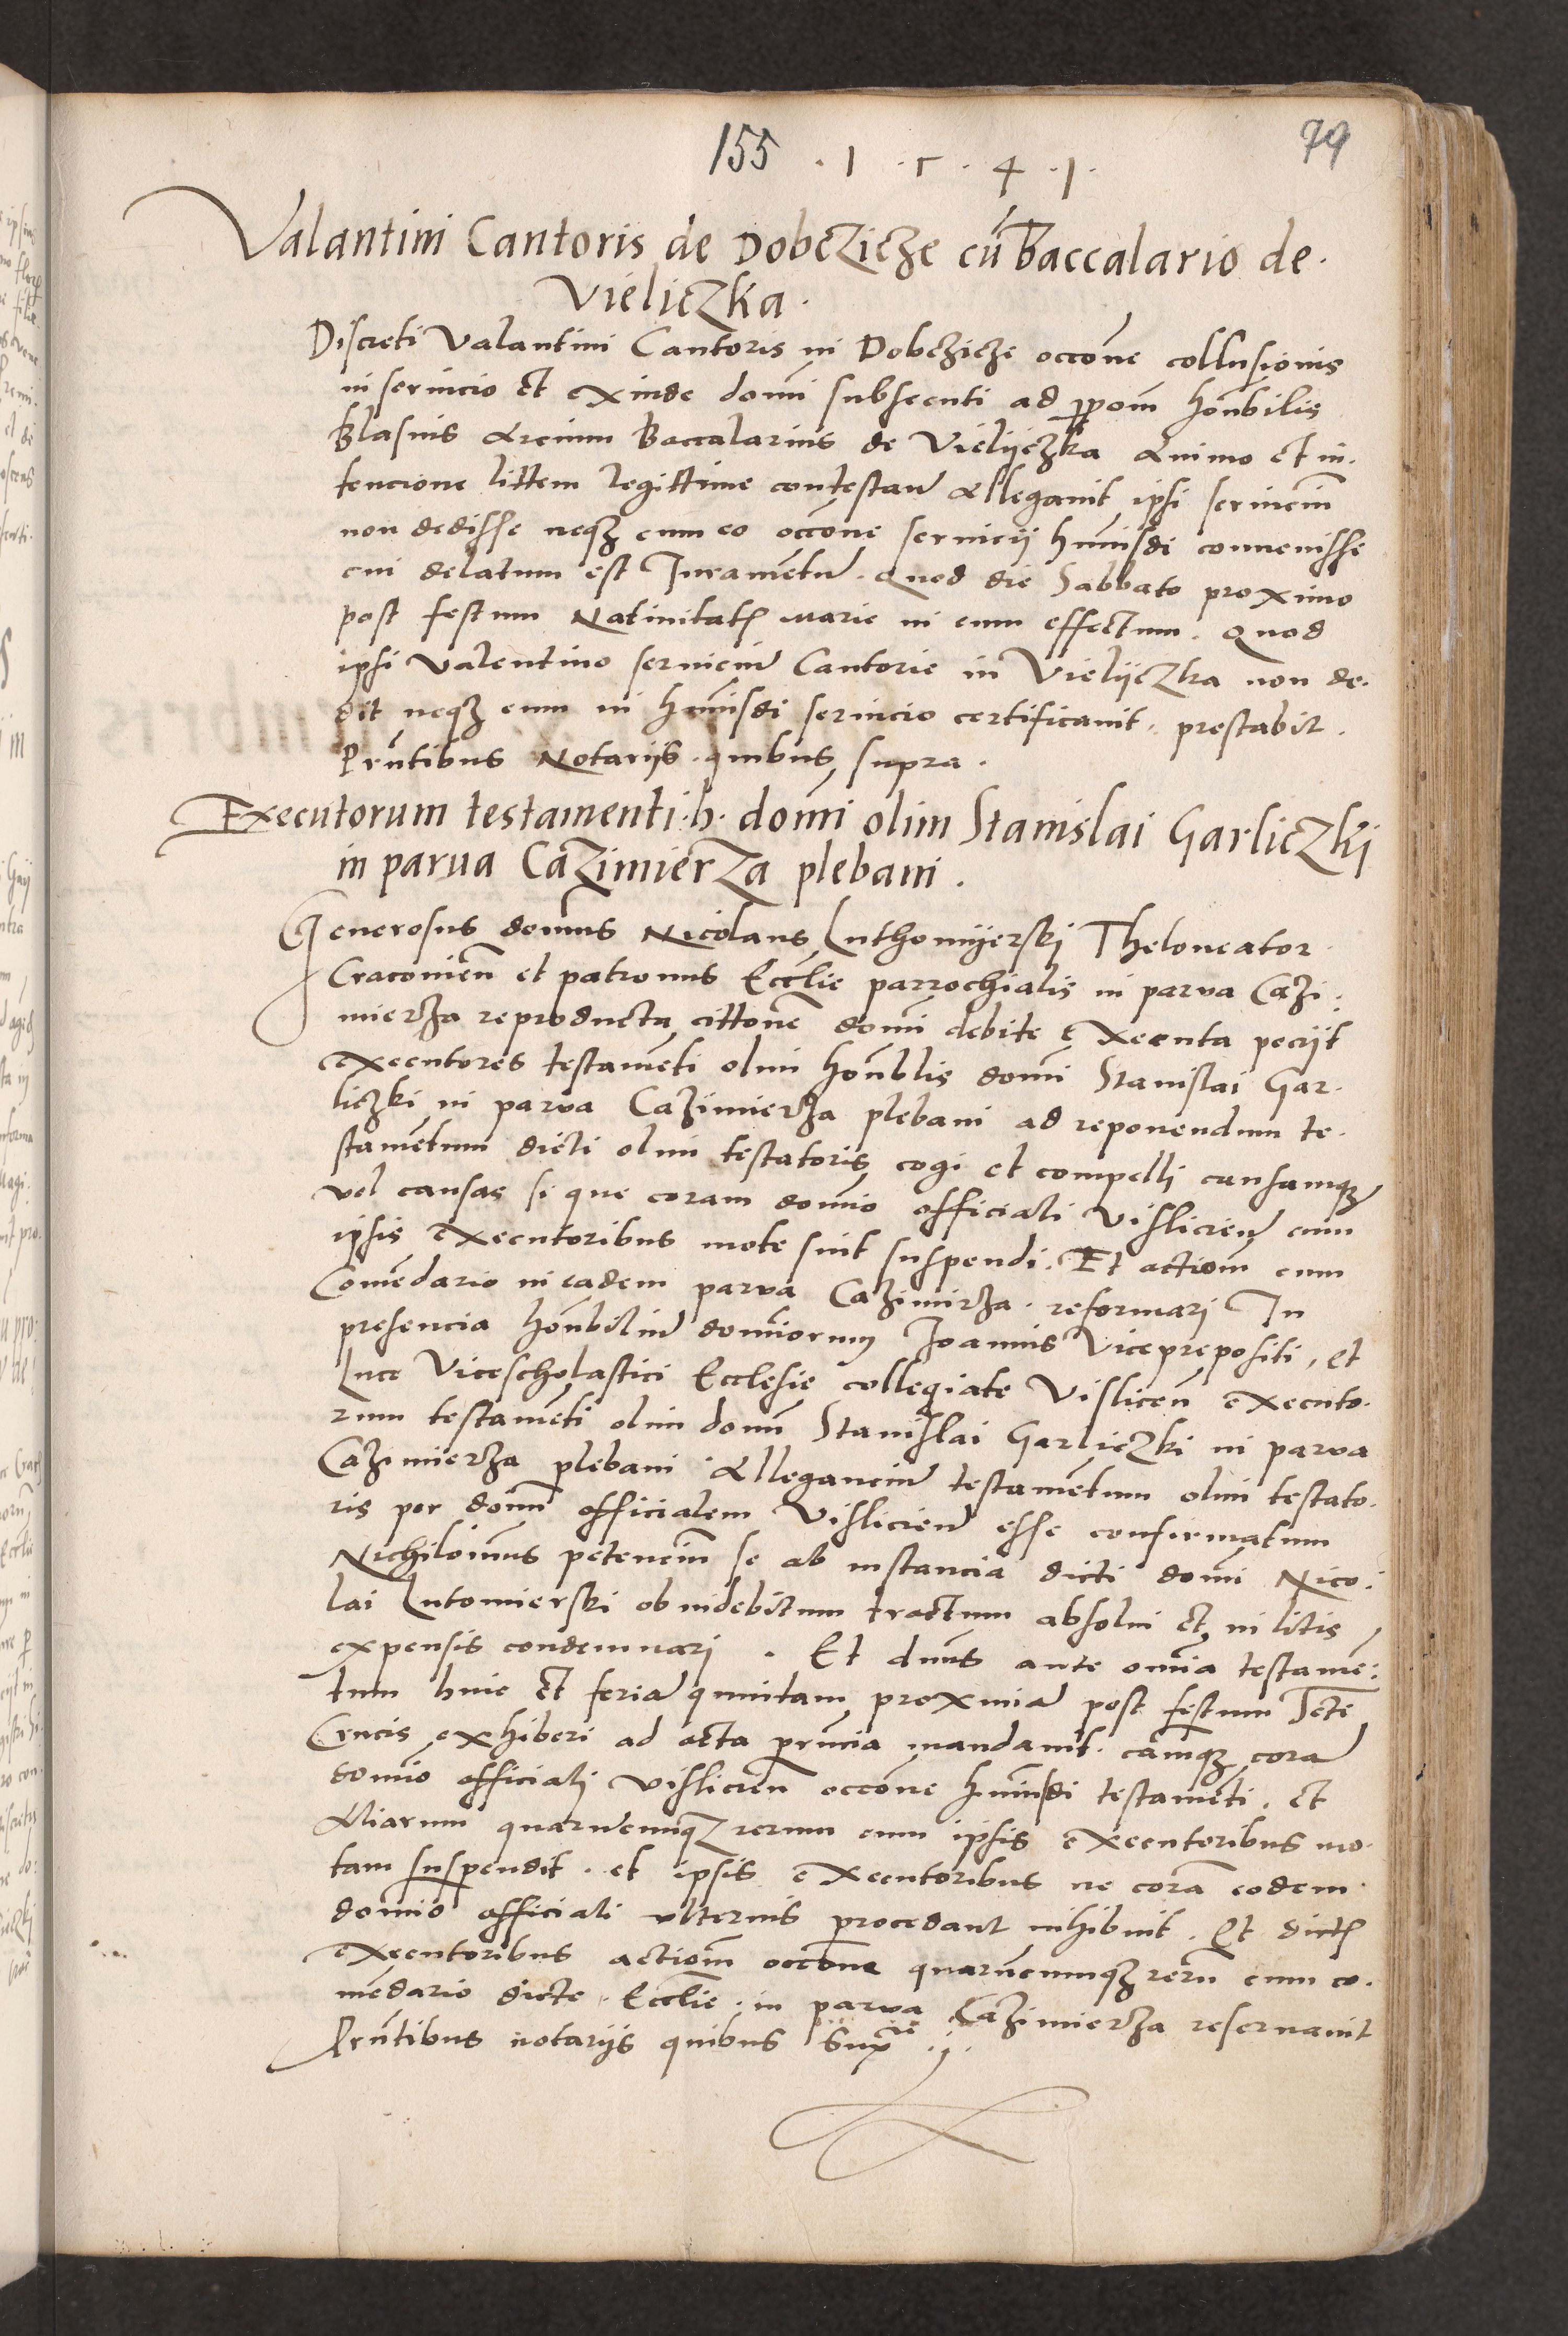 155 . 1 . 5 . 4 . 1 . 79
Valantini Cantoris de Dobczicze cū Baccalario de
Vieliczka.
Discreti Valantini Cantoris in Dobczicze occōne collusionis
in servicio et exinde domī subsecuti ad ꝓpōm honbilis
Blasius Arcium Baccalarius de Vielijczka Animo et in-
tencione littem legittime contestan̄ Allegavit ipsi serviciū
non dedisse neqꝫ cum eo occōne servicij hmōi convenisse
cui delatum est Juramentū. Quod die Sabbato proximo
post festum Natiuitatꝭ marie in eum effectum. Quod
ipsi Valentino serviciū Cantorie in Vielijczka non de-
dit neqꝫ eum in hmōi servicio certificavit. prestabit.
Prn̄tibus Notarijs quibus supra.
Executorum testamenti h. domī olim Stanislai Garliczkj
in parua Cazimierza plebani.
Generosus domnus Nicolaus Luthomijerskj Theloneator
Cracovien̄ et patronus Ecclīe parrochialis in parva Cazi-
mierza reproducta cittōne domī debite executa pecijt
executores testamēti olim honblis domī Stanislai Gar-
liczki in parva Cazimierza plebani ad reponendum te-
stamētum dicti olim testatoris cogi et compelli causamqꝫ
vel causas si que coram domīo officiali Vislicien̄ cum
ipsis executoribus mote sint suspendi. Et actiōm cum
Comēdario in eadem parva Cazimirza reformari In
presencia honbiliū domīorum Joannis Vicepropositi, et
Luce Vicescholastici Ecclesie collegiate Vislicen̄ executo-
rum testamēti olim domī Stanislai Garliczki in parva
Cazimierza plebani Alleganciū testamētum olim testato-
ris per domī officialem Vislicien̄ esse confirmatum
Nichilomīus petenciū se ab instancia dicti domī Nico-
lai Lutomierski ob indebitum tractum absolvi et in litis
expensis condemnari. Et dnūs ante omīa testamē-
tum huic et feriā quintam proximā post festum Scte
Crucis exhiberi ad acta prn̄cia mandavit. camqꝫ corā
domīo officiali vislicien̄ occōne hmōi testamēti. et
Aliarum quarūcumqꝫ rerum cum ipsis executoribus mo-
tam suspendit. et ipsis executoribus ne corā eodem
domīo officiali ulterius procedant inhibuit. Et dictꝭ
executoribus actiōm occōne quarūcumqꝫ rerū cum co-
mēdario dicte Ecclīe in parva Cazimierza reservavit
Prn̄tibus notarijs quibus supra